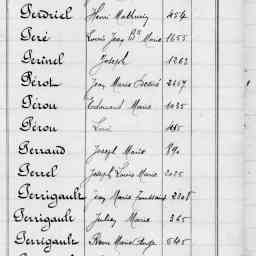 Perdriel Henri Mathurin 454
Peré Louis Jean Bte Marie 1655
Perinel Joseph 1262
Pérot Jean Marie 2457
Pérou Edouard Marie 1035
Pérou Louis 415
Perraud Joseph Marie 890
Perrel Joseph Louis Marie 2025
Perrigault Jean Marie Toussaint 2208
Perrigault Julien Marie 365
Perrigault Pierre Marie Ange 545